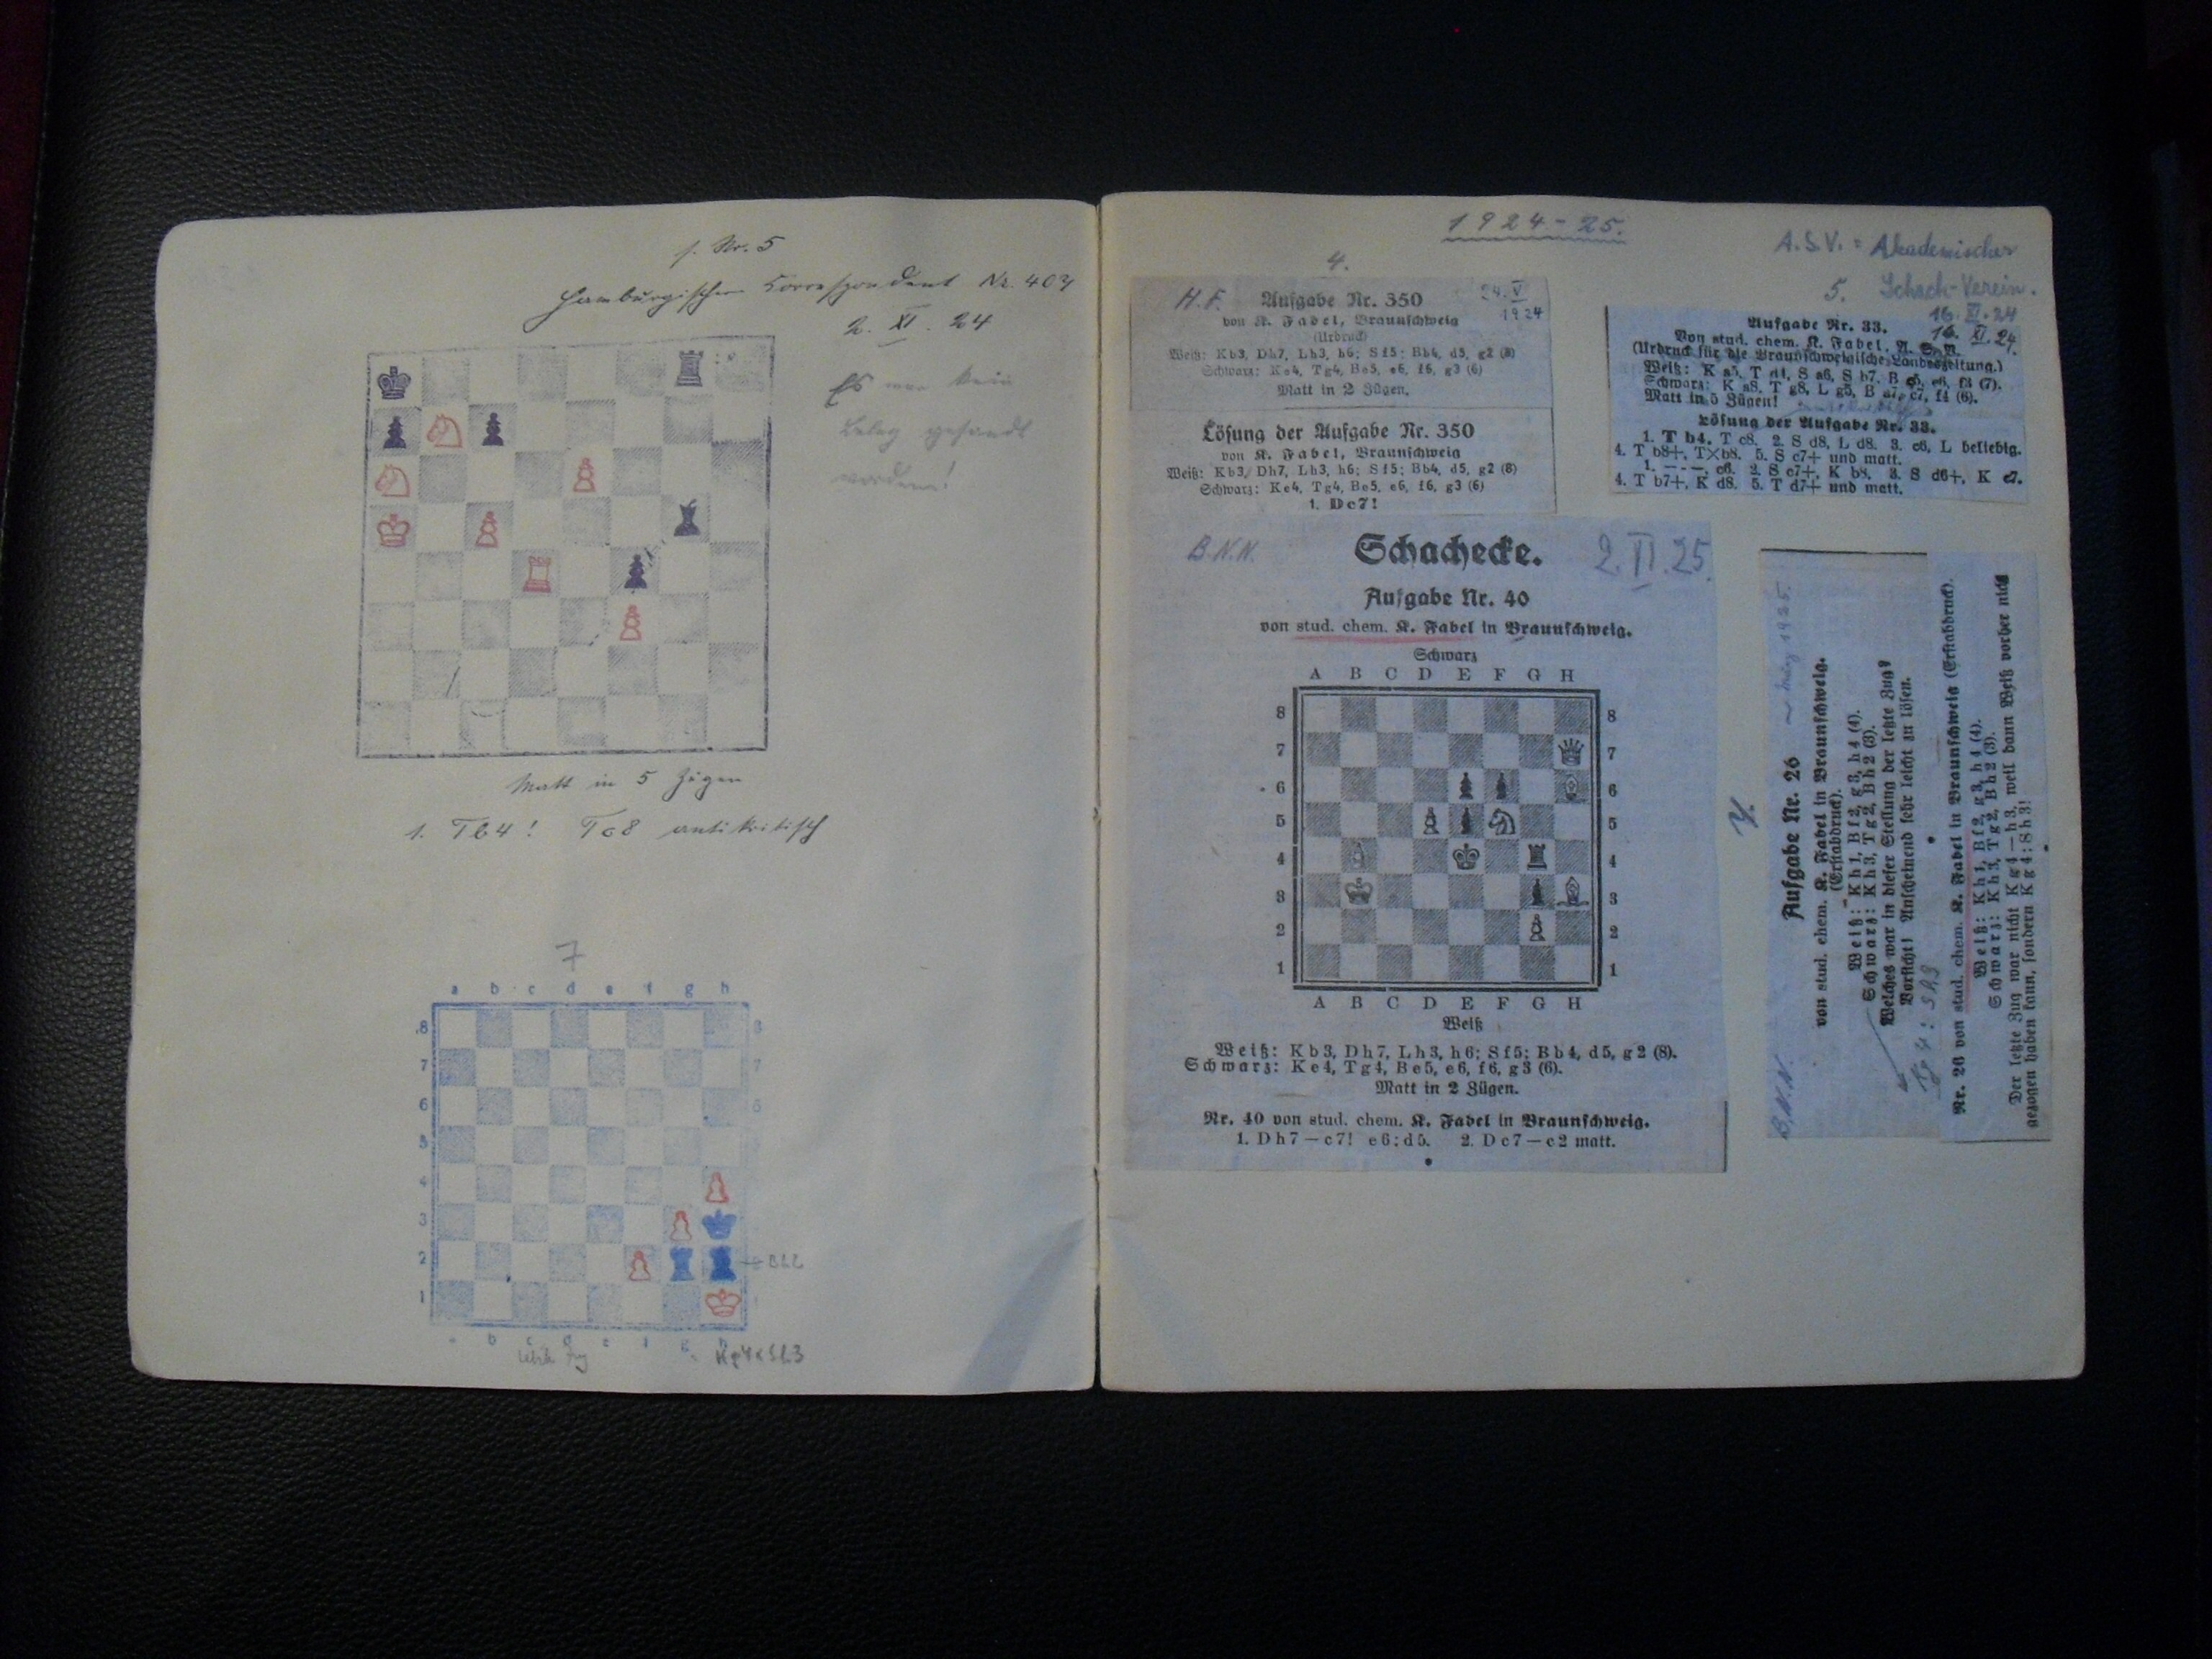 s. Nr. 5
Hamburgischer Correspondent Nr. 407
2. XI. 24
Es war kein
Beleg gesandt
worden!
Matt in 5 Zügen
1. Tb4! Tc8 antikritisch
7
a b c d e f g h
8 8
7 7
6 6
5
4
3
2
1
b c d e f g h
letzter Zug Kg4xSh3
1924-25.
A.S.V. = Akademischer
Schach-Verein.
4.
H.F. Aufgabe Nr. 350 24. V
1924
von K. Fabel, Braunschweig
(Urdruck)
Weiß: Kb3, Dh7, Lh3, h6; Sf5; Bb4, d5, g2 (8)
Schwarz: Ke4, Tg4, Be5, e6, f6, g3 (6)
Matt in 2 Zügen.
Lösung der Aufgabe Nr. 350
von K. Fabel, Braunschweig
Weiß: Kb3, Dh7, Lh3, h6; Sf5; Bb4, d5, g2 (8)
Schwarz: Ke4, Tg4, Be5, e6, f6, g3 (6)
1. Dc7!
5.
16. XI. 24
Aufgabe Nr. 33. 16. XI. 24.
Von stud. chem. K. Fabel, A. S. V.
(Urdruck für die Braunschweigische Landeszeitung.)
Weiß: K a5, T d4, S a6, S b7, B c5, e6, f3 (7).
Schwarz: K a8, T g8, L g5, B a7, c7, f4 (6).
Matt in 5 Zügen!
Lösung der Aufgabe Nr. 33.
1. T b4, T c8. 2. S d8, L d8. 3. c6, L beliebig.
4. T b8+, T×b8. 5. S c7+ und matt.
1. —.—, c6. 2. S c7+, K b8. 3. S d6+, K c7.
4. T b7+, K d8. 5. T d7+ und matt.
B.N.N. Schachecke. 2. II. 25.
Aufgabe Nr. 40
von stud. chem. K. Fabel in Braunschweig.
Schwarz
A B C D E F G H
8 8
7 7
6 6
5 5
4 4
3 3
2 2
1 1
A B C D E F G H
Weiß
Weiß: Kb3, Dh7, Lh3, h6; Sf5; Bb4, d5, g2 (8).
Schwarz: Ke4, Tg4, Be5, e6, f6, g3 (6).
Matt in 2 Zügen.
Nr. 40 von stud. chem. K. Fabel in Braunschweig.
1. Dh7—c7! e6:d5. 2. Dc7—c2 matt.
7.
B.N.N. ~ März 1925.
Aufgabe Nr. 26
von stud. chem. K. Fabel in Braunschweig.
(Erstabdruck).
Weiß: Kh1, Bf2, g3, h4 (4).
Schwarz: Kh3, Tg2, Bh2 (3).
Welches war in dieser Stellung der letzte Zug?
Vorsicht! Anscheinend sehr leicht zu lösen.
Kg4:Sh3
Nr. 26 von stud. chem. K. Fabel in Braunschweig (Erstabdruck).
Weiß: Kh1, Bf2, g3, h4 (4).
Schwarz: Kh3, Tg2, Bh2 (3).
Der letzte Zug war nicht Kg4—h3, weil dann Weiß vorher nicht
gezogen haben kann, sondern Kg4:Sh3!